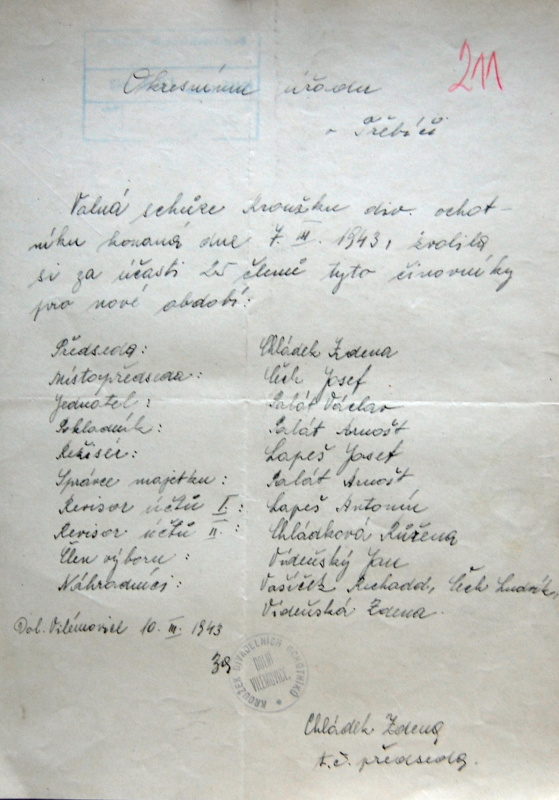 211
Okresnímu úřadu
v Třebíči
Valná schůze Kroužku div. ochot-
níků konaná dne 7. III. 1943, zvolila
si za účasti 25 členů tyto činovníky
pro nové období:
Předseda: Chládek Zdena
Místopředseda: Čech Josef
Jednatel: Palát Václav
Pokladník: Palát Arnošt
Režisér: Lapeš Josef
Správce majetku: Palát Arnošt
Revisor účtů I.: Lapeš Antonín
Revisor účtů II.: Chládková Růžena
Člen výboru: Vídeňský Jan
Náhradníci: Vašíček Richadd, Čech Ludvík,
Vídeňská Zdena.
Dol. Vilémovice 10. III. 1943
za
KROUŽEK DIVADELNÍCH OCHOTNÍKŮ
DOLNÍ
VILÉMOVICE.
Chládek Zdena
t. č. předseda.